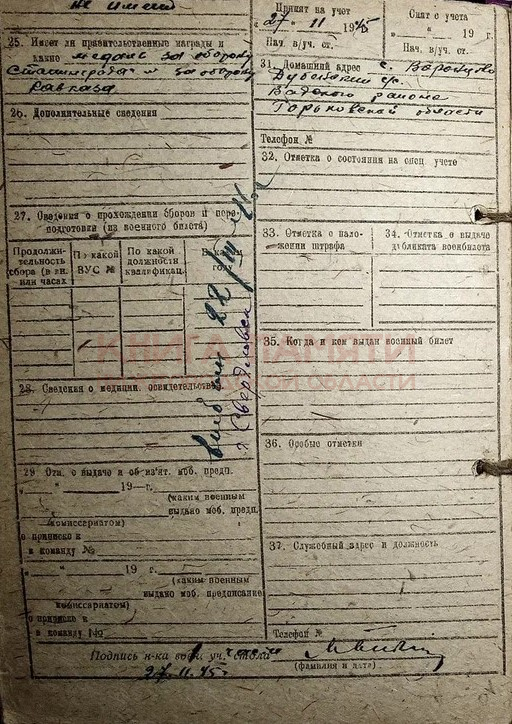 не имеет
25. Имеет ли правительственные награды и
какие медаль за оборону
Сталинграда и за оборону
Кавказа
26. Дополнительные сведения
27. Сведения о прохождении сборов и пере-
подготовки (из военного билета)
Продолжи-
тельность
сбора (в дн.
или часах
По какой
ВУС №
По какой
должности
квалификац.
В как
году
28. Сведения о медицин. освидетельствов.
29. Отм. о выдаче и об из'ят. моб. предп.
„ “ 19 г.
(каким военным
выдано моб. предп.
комиссариатом)
о приписке к
в команду №
„ “ 19 г.
(каким военным
выдано моб. предписание
комиссариатом)
о приписке к
в команду №
Принят на учет
„27“ 11 1945
Нач. в/уч. ст.
Снят с учета
„ “ 19 г.
Нач. в/уч. ст.
31. Домашний адрес с. Воронцово
Дубенский с/с.
Вадского района
Горьковской области
Телефон №
32. Отметка о состоянии на спец. учете
33. Отметка о нало-
жении штрафа
34. Отметка о выдаче
дубликата военбилета
35. Когда и кем выдан военный билет
36. Особые отметки
37. Служебный адрес и должность
Телефон №
(фамилия и дата)
Подпись н-ка воен. уч. стола
27.11.45 г.
выбыл 22/VII
г Свердловск
КНИГА ПАМЯТИ
ОБЛАСТИ